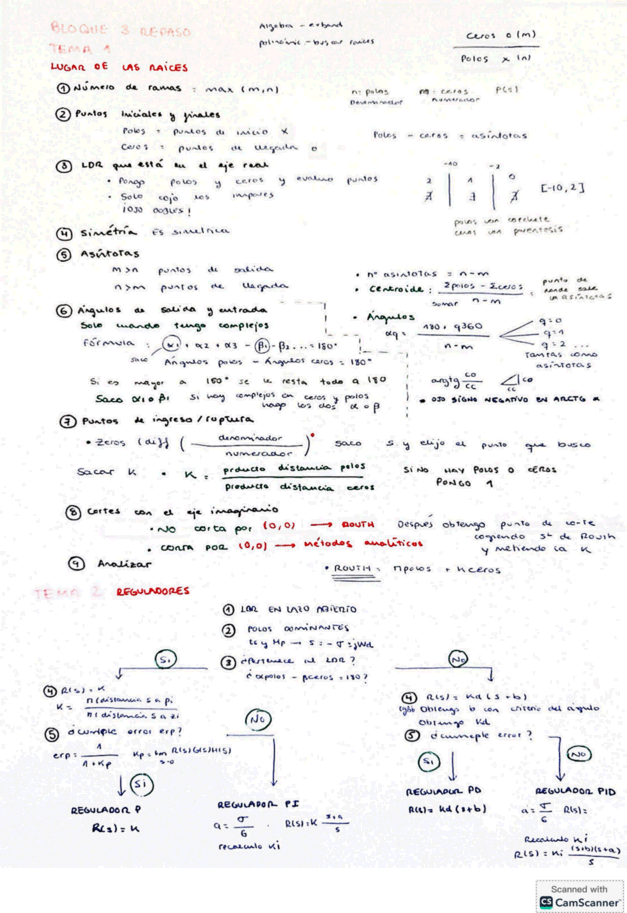 BLOQUE 3 REPASO
Algebra - expand
polinómic - buscar raices
Ceros o (m)
Polos x (n)
TEMA 1
LUGAR DE LAS RAÍCES
① Número de ramas = max (m,n)
n: polos
Denominador
m: ceros
numerador
P(s)
② Puntos iniciales y finales
Polos = puntos de inicio x
Ceros = puntos de llegada o
Polos - ceros = asíntotas
③ LDR que está en el eje real
• Pongo polos y ceros y evaluo puntos
• Solo cojo los impares
-10 -2 0
[-10,2]
polos van corchete
ceros van parentesis
④ Simetría ES simétrica
⑤ Asíntotas
m>n puntos de salida
n>m puntos de llegada
• nº asíntotas = n-m
• Centroide: Σpolos - Σceros
sumar n-m
punto de
donde sale
la asíntotas
⑥ Ángulos de salida y entrada
Solo cuando tengo complejos
Fórmula: α1 + α2 + α3 - β1 - β2 ... = 180°
saco Ángulos polos - Ángulos ceros = 180°
• Ángulos
αq = 180 + q360
n-m
q=0
q=1
q=2 ...
tantas como
asíntotas
Si es mayor a 180° se le resta todo a 180
Saco α1 o β1 Si hay complejos en ceros y polos
hago los dos α o β
argtg CO
CC
CO
CC
• OJO SIGNO NEGATIVO EN ARCTG
⑦ Puntos de ingreso / ruptura
• Zeros (diff ( denominador
numerador )
saco s y elijo el punto que busco
Sacar K • K = producto distancia polos
producto distancia ceros
SI NO HAY POLOS O CEROS
PONGO 1
⑧ Cortes con el eje imaginario
• NO corta por (0,0) → ROUTH Después obtengo punto de corte
cogiendo s² de Routh
y metiendo la K
• CORTA POR (0,0) → Métodos analíticos
⑨ Analizar
• ROUTH = npolos + Kceros
TEMA 2 REGULADORES
① LDR EN LAZO ABIERTO
② POLOS DOMINANTES
ts y Mp → s = -σ ± jWd
③ ¿Pertenece al LDR?
¿ αpolos - βceros = 180?
Si
No
④ R(s) = K
K = π(distancia s a pi
π(distancia s a zi
⑤ ¿cumple error erp?
erp = 1
1+Kp
Kp = lim R(s)G(s)H(s)
s→0
Si
No
REGULADOR P
R(s) = K
REGULADOR PI
a = σ
6
R(s) = K s+a
s
recalculo Ki
④ R(s) = Kd (s+b)
Obtengo b con criterio del ángulo
Obtengo Kd
⑤ ¿cumple error?
Si
No
REGULADOR PD
R(s) = Kd (s+b)
REGULADOR PID
a = σ
6
R(s) =
Recalculo Ki
R(s) = Ki (s+b)(s+a)
s
Scanned with
CS CamScanner